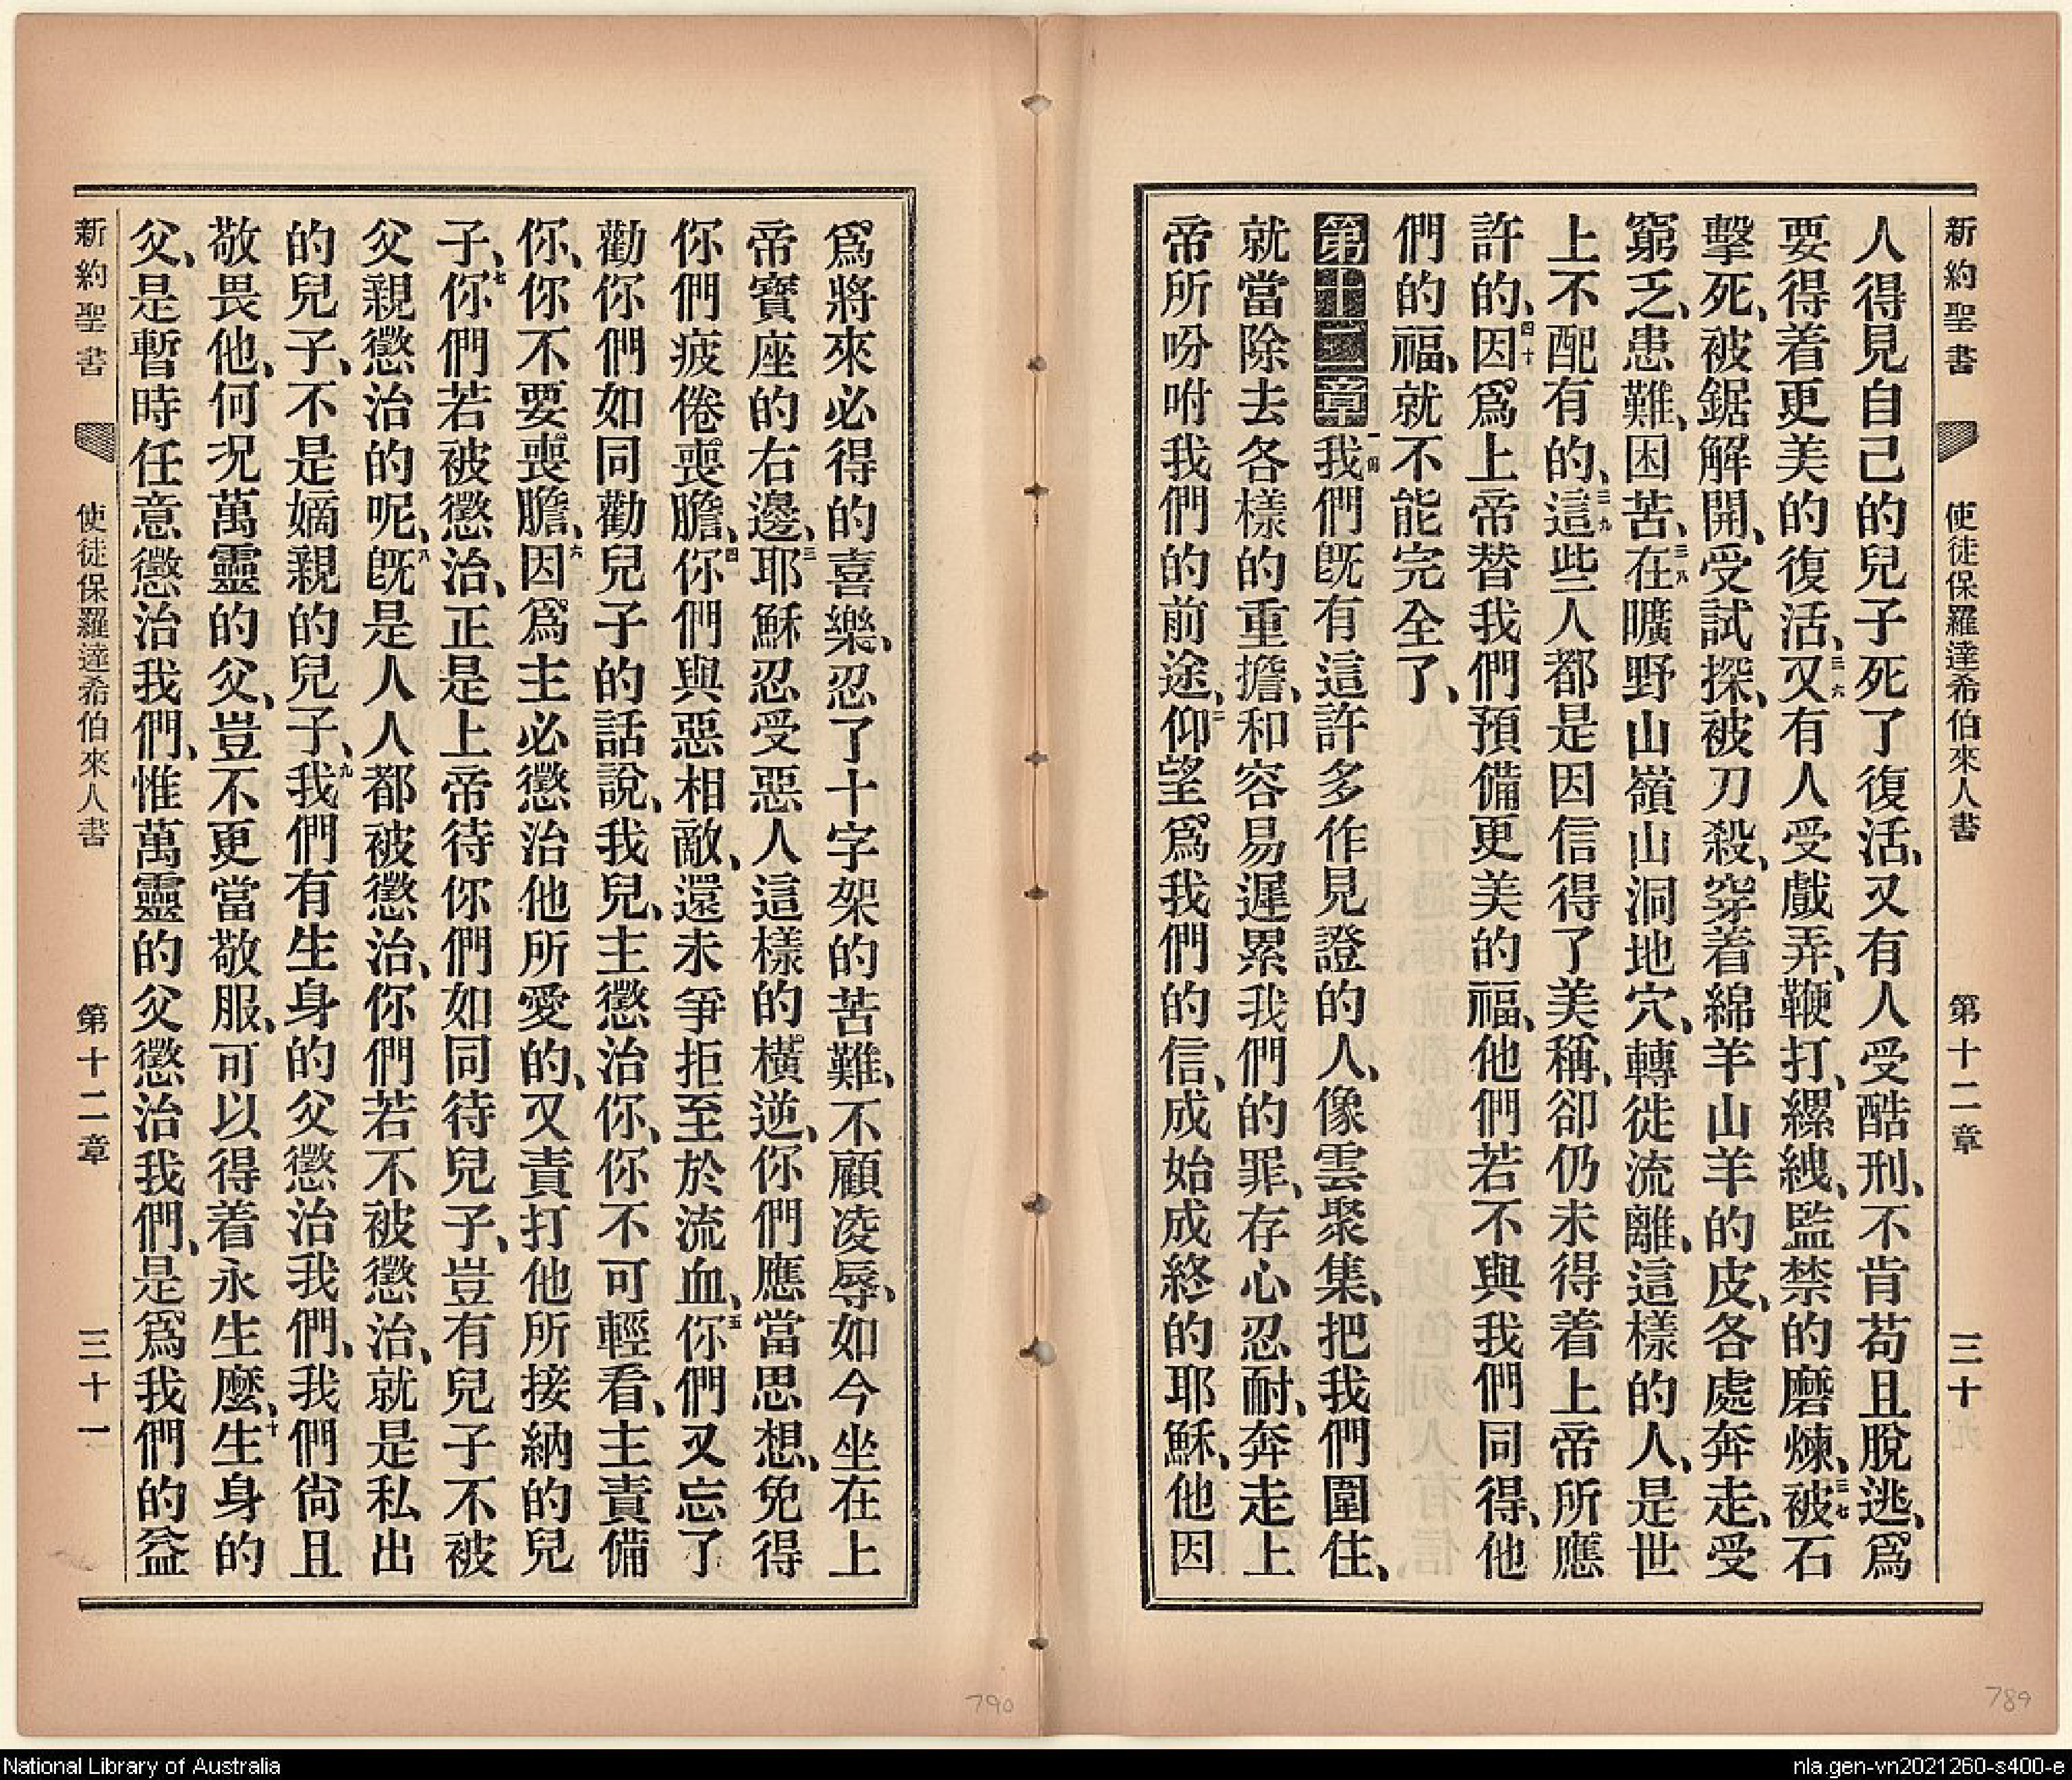 新約聖書 使徒保羅達希伯來人書 第十二章 三十
人得見自己的兒子死了復活、又有人受酷刑、不肯苟且脫逃、爲
要得着更美的復活、三六又有人受戲弄、鞭打、縲絏、監禁的磨煉、三七被石
擊死、被鋸解開、受試探、被刀殺、穿着綿羊山羊的皮、各處奔走、受
窮乏、患難、困苦、三八在曠野山嶺山洞地穴、轉徙流離、這樣的人、是世
上不配有的、三九這些人都是因信得了美稱、卻仍未得着上帝所應
許的、四十因爲上帝替我們預備更美的福、他們若不與我們同得、他
們的福、就不能完全了、
第十二章一我們旣有這許多作見證的人、像雲聚集、把我們圍住、
就當除去各樣的重擔、和容易遲累我們的罪、存心忍耐、奔走上
帝所吩咐我們的前途、二仰望爲我們的信、成始成終的耶穌、他因
爲將來必得的喜樂、忍了十字架的苦難、不顧凌辱、如今坐在上
帝寶座的右邊、三耶穌忍受惡人這樣的橫逆、你們應當思想、免得
你們疲倦喪膽、四你們與惡相敵、還未爭拒至於流血、五你們又忘了
勸你們如同勸兒子的話說、我兒、主懲治你、你不可輕看、主責備
你、你不要喪膽、六因爲主必懲治他所愛的、又責打他所接納的兒
子、七你們若被懲治、正是上帝待你們如同待兒子、豈有兒子不被
父親懲治的呢、八旣是人人都被懲治、你們若不被懲治、就是私出
的兒子、不是嫡親的兒子、九我們有生身的父懲治我們、我們尙且
敬畏他、何况萬靈的父、豈不更當敬服、可以得着永生麼、十生身的
父、是暫時任意懲治我們、惟萬靈的父懲治我們、是爲我們的益
新約聖書 使徒保羅達希伯來人書 第十二章 三十一
790
789
National Library of Australia
nla.gen-vn2021260-s400-e